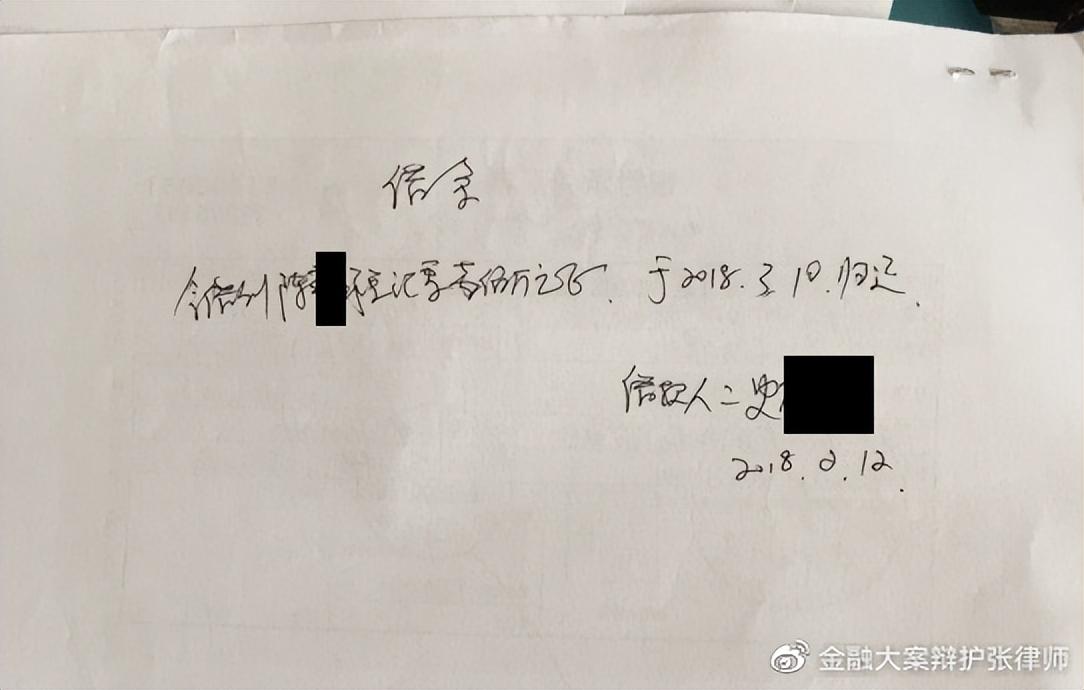 借条
今借到陈 登记军壹佰万元正. 于2018.3.10.归还.
借款人:史
2018.2.12.
金融大案辩护张律师